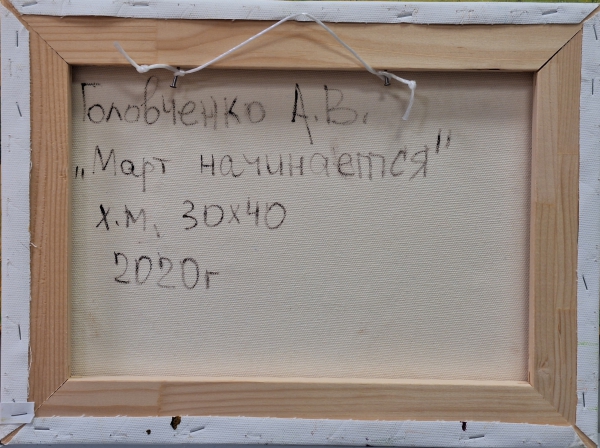 Головченко А.В.
„Март начинается"
х.м, 30х40
2020г